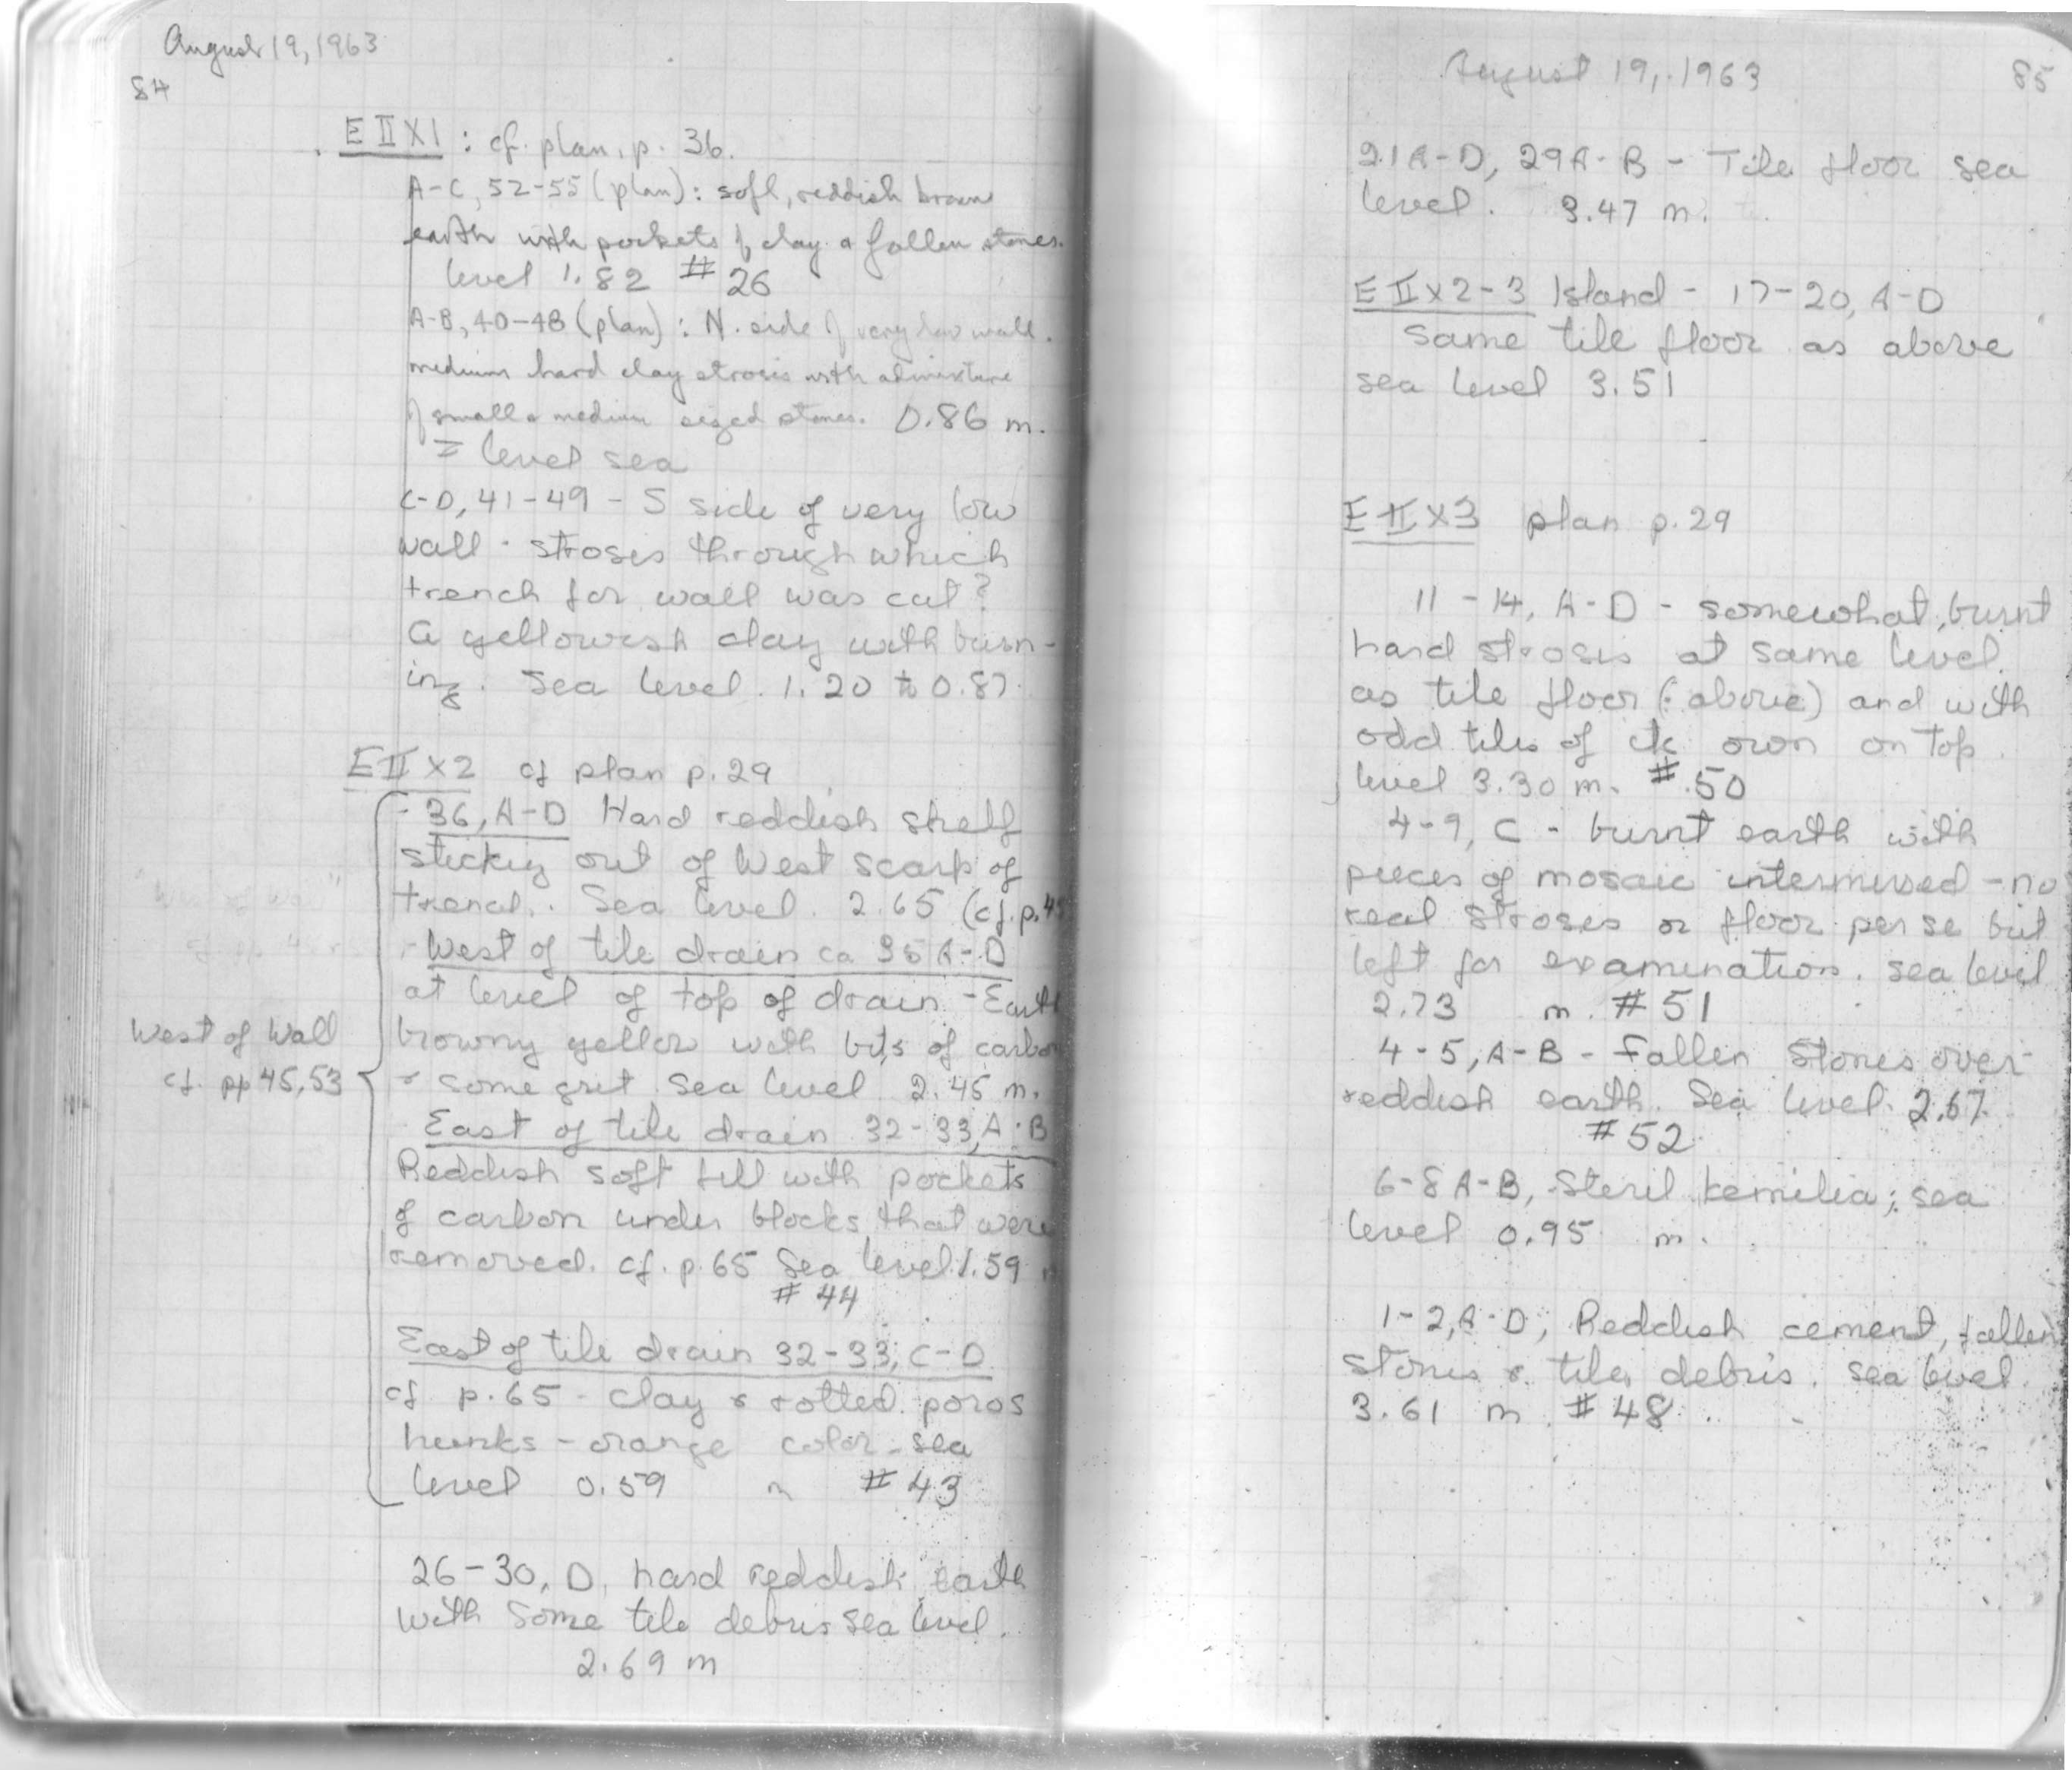 August 19, 1963
84
E II X1 : cf. plan, p. 36.
A-C, 52-55 (plan): soft, reddish brown
earth with pockets of clay & fallen stones.
level 1.82 #26
A-B, 40-48 (plan): N. side of very low wall.
medium hard clay strosis with admixture
of small & medium sized stones. 0.86 m.
= level sea
C-D, 41-49 - S side of very low
wall - stroses through which
trench for wall was cut?
a yellowish clay with burn-
ing. Sea level. 1.20 to 0.87.
E II X2 cf plan p. 29
- 36, A-D Hard reddish shelf
sticking out of West scarp of
trench. Sea level. 2.65 (cf. p. 45
- West of tile drain ca 35 A-D
at level of top of drain - Earth
browny yellow with bits of carbon
& some grit. Sea level 2.45 m.
West of Wall
cf. pp 45, 53
East of tile drain 32-33, A-B
Reddish soft fill with pockets
of carbon under blocks that were
removed. cf. p. 65 Sea level 1.59 m
#44
East of tile drain 32-33, C-D
cf p. 65 - clay & rotted poros
hunks - orange color - sea
level 0.59 m #43
26-30, D, hard reddish earth
with some tile debris sea level.
2.69 m
August 19, 1963
85
21A-D, 29A-B - Tile floor sea
level. 3.47 m.
E II X2-3 Island - 17-20, A-D
same tile floor as above
sea level 3.51
E II X3 plan p. 29
11-14, A-D - somewhat, burnt
hard strosis at same level
as tile floor (: above) and with
odd tiles of its own on top.
level 3.30 m. #50
4-9, C - burnt earth with
pieces of mosaic intermixed - no
real stroses or floor per se but
left for examination. sea level
2.73 m. #51
4-5, A-B - Fallen stones over
reddish earth. Sea level. 2.67.
#52
6-8 A-B, Steril kemilia; sea
level 0.95 m.
1-2, A-D, Reddish cement, fallen
stones & tile debris. sea level
3.61 m. #48.